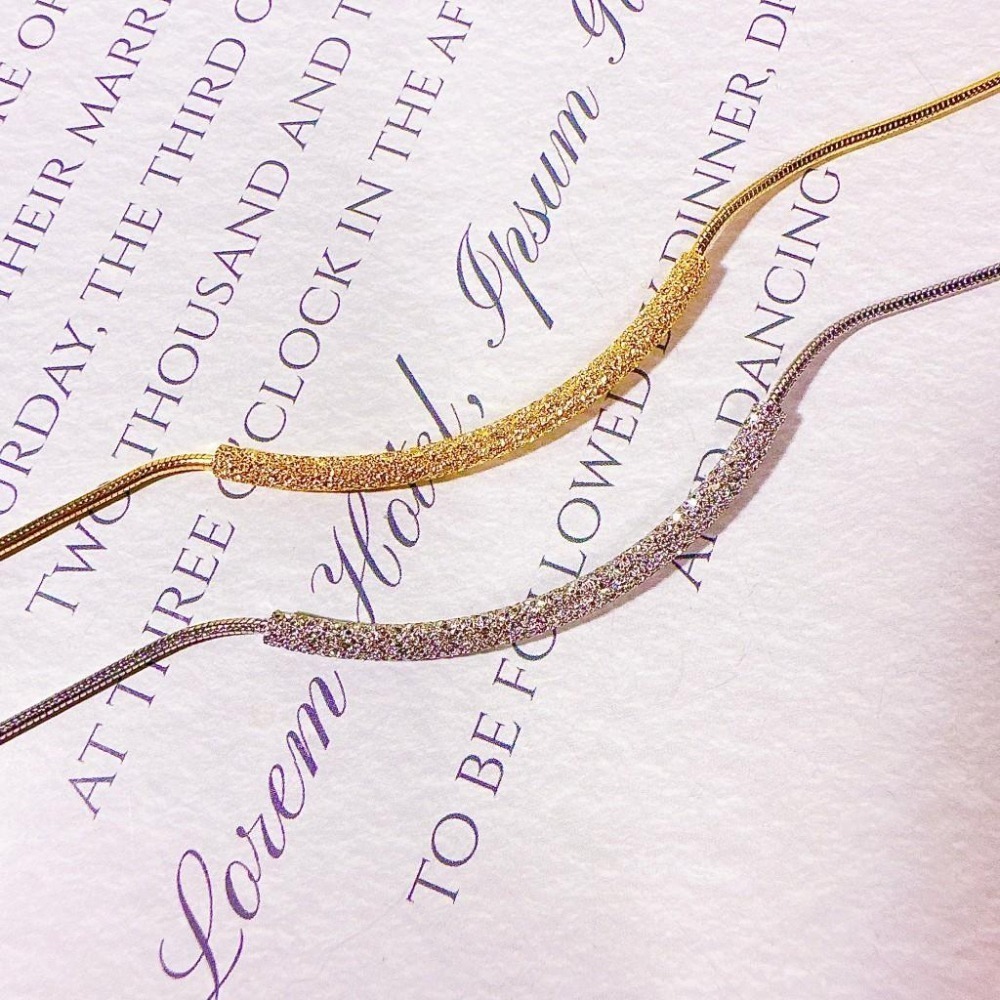 HEIR MARRI
URDAY, THE THIRD O
TWO THOUSAND AND T
AT THREE O'CLOCK IN THE AF
Lorem Hotel, Ipsum
TO BE FOLLOWED BY DINNER, D
AND DANCING